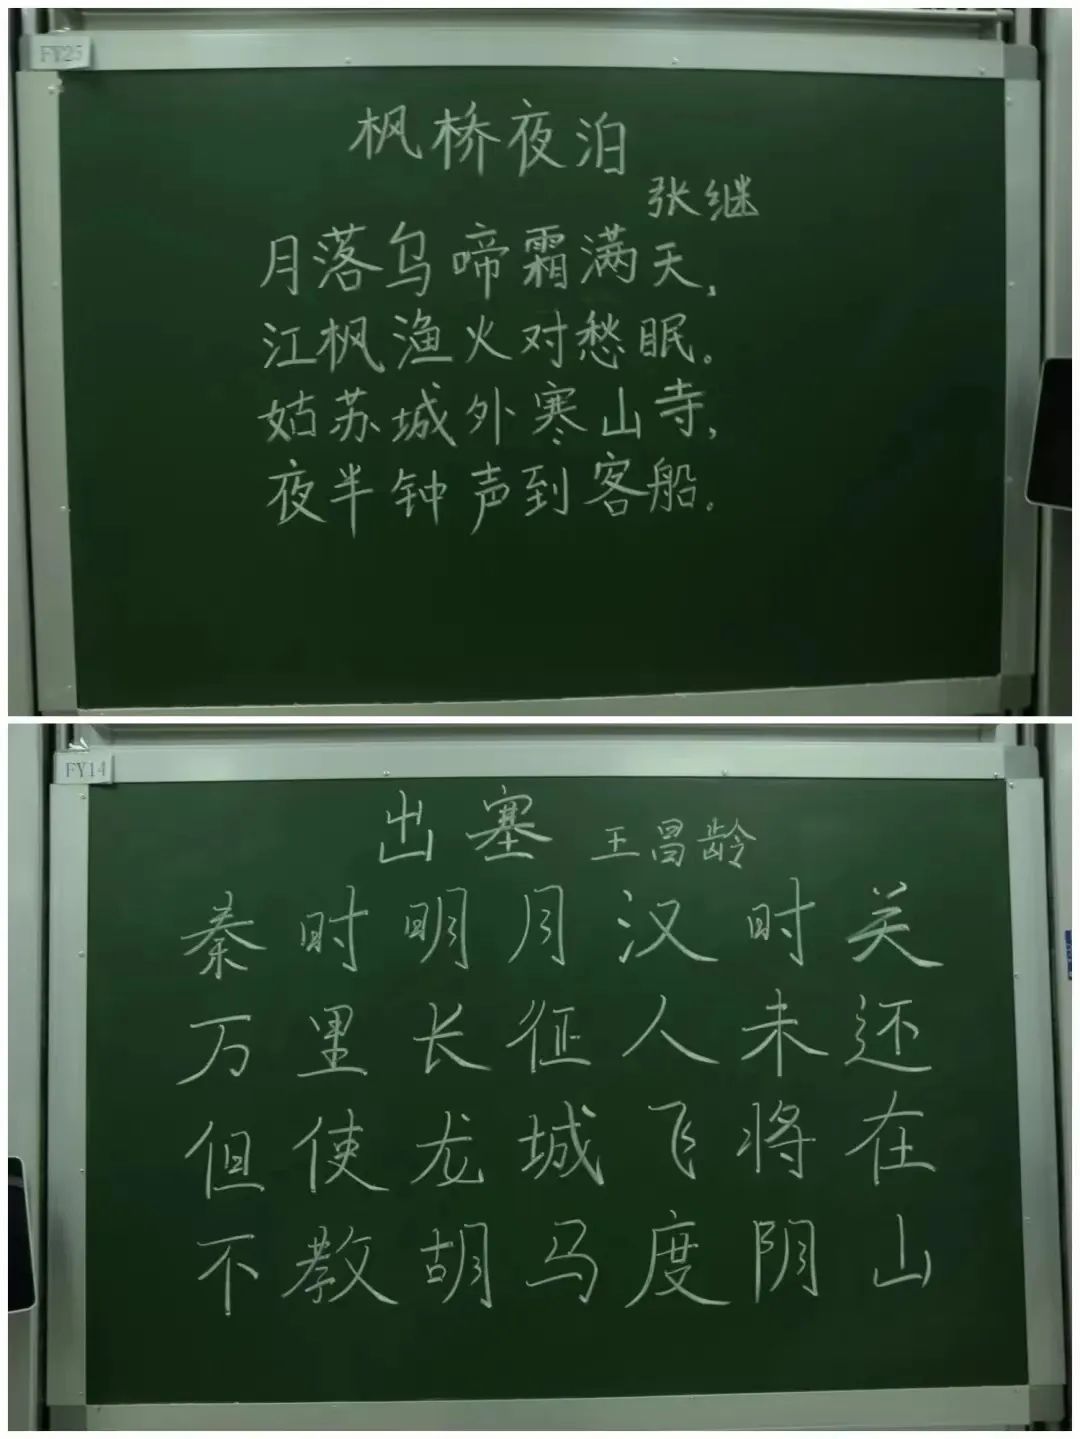 FY25
枫桥夜泊
张继
月落乌啼霜满天,
江枫渔火对愁眠.
姑苏城外寒山寺,
夜半钟声到客船.
FY14
出塞 王昌龄
秦时明月汉时关
万里长征人未还
但使龙城飞将在
不教胡马度阴山